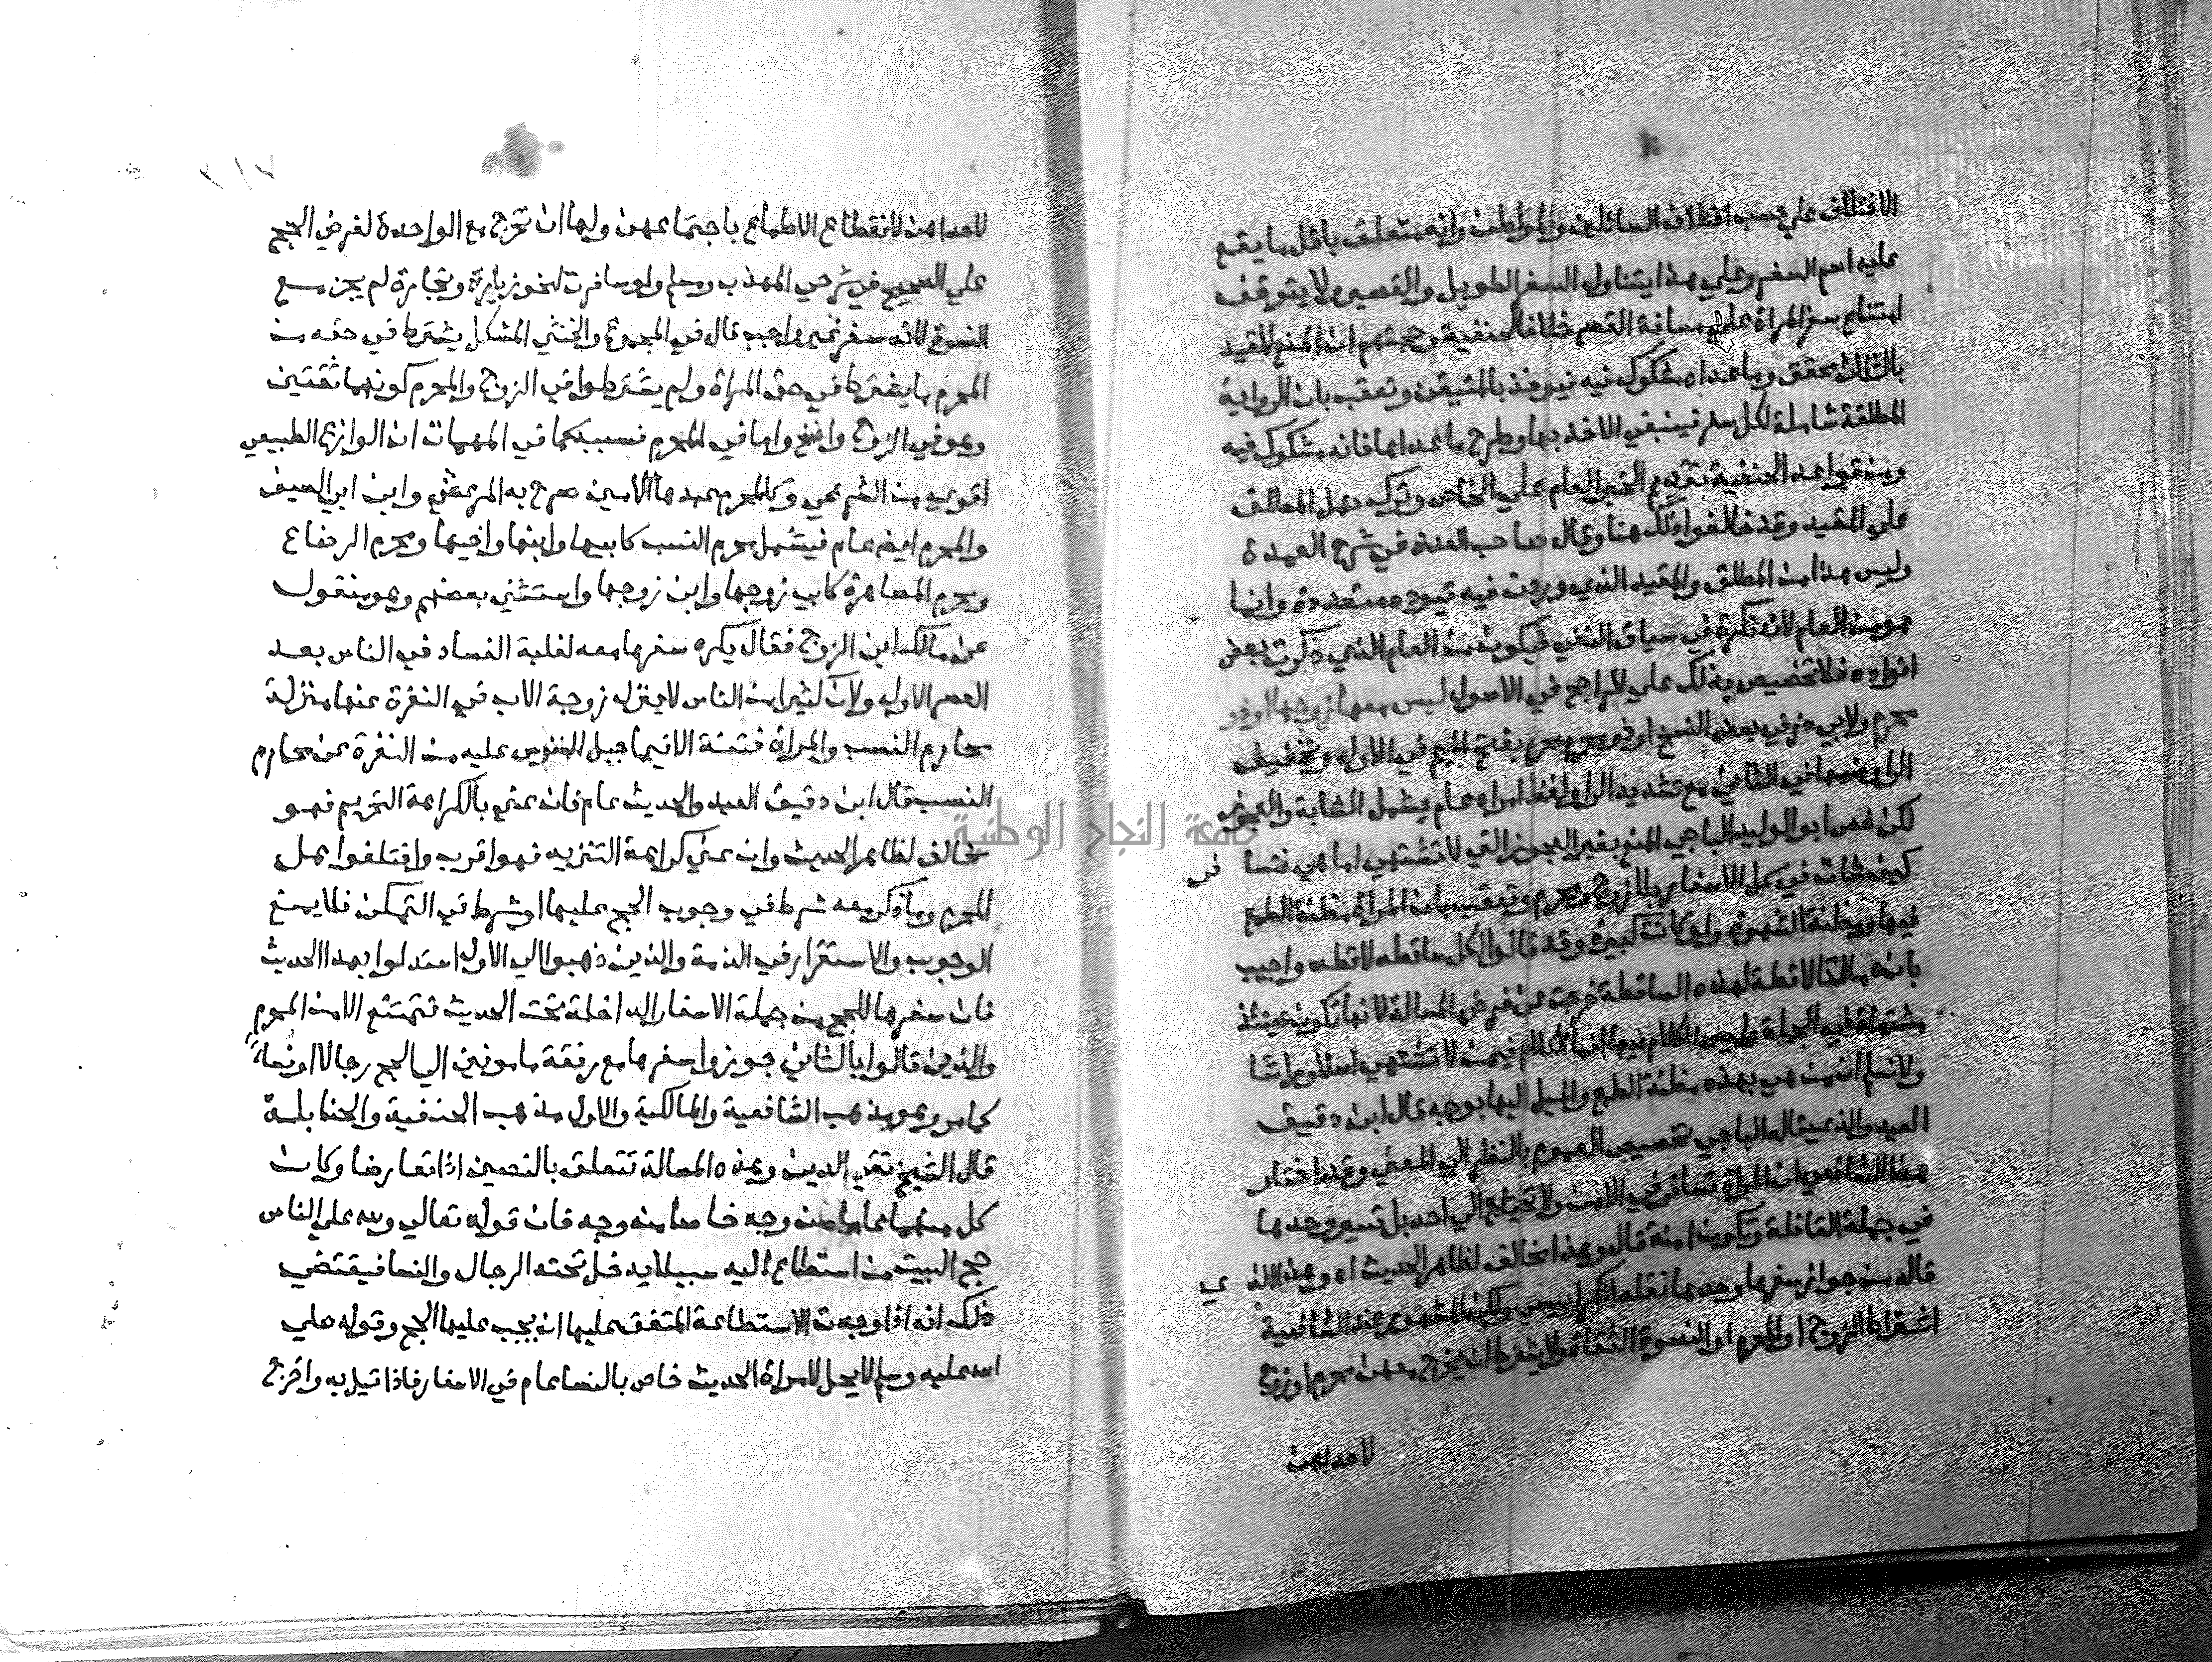 الاختلاف علي حسب اختلاف السائلين والمواطن وانه متعلق باقل ما يقع
عليه اسم السفر وعلي هذا يتناول السفر الطويل والقصير ولا يتوقف
امتناع سفر المراة علي مسافة القصر خلافا للحنفية وحجتهم ان المنع المقيد
بالثلاث محقق وما عداه مشكوك فيه فيوخذ بالمتيقن وتعقب بان الرواية
المطلقة شاملة لكل سفر فينبغي الاخذ بها وطرح ما عداها فانه مشكوك فيه
ومن قواعد الحنفية تقديم الخبر العام علي الخاص وترك حمل المطلق
علي المقيد وقد خالفوا ذلك هنا وقال صاحب العدة في شرح العمدة
وليس هذا من المطلق والمقيد الذي وردت فيه قيود متعددة وانما
هو من العام لانه نكرة في سياق النفي فيكون من العام الذي ذكرت بعض
افراده فلا تخصيص بذلك علي الراجح في الاصول ليس معها زوجها او ذو
محرم ولابي ذر في بعض النسخ او ذو محرم محرم بفتح الميم في الاول وتخفيف
الرا وضمها في الثاني مع تشديد الرا ولفظ امراه عام يشمل الشابة والعجوز
لكن خص ابو الوليد الباجي المنع بغير العجوز التي لا تشتهي اما هي فتسافر
كيف شات في كل الاسفار بلا زوج ومحرم وتعقب بان المراة مظنة الطمع
فيها ومظنة الشهوة ولو كانت كبيرة وقد قالوا لكل ساقطه لاقطه واجيب
بانه مالنا لاقطة لهذه الساقطة خرجت عن فرض المسالة لانها تكون حينئذ
مشتهاة في الجملة وليس الكلام فيها انما الكلام فيمن لا تشتهي اصلا وراسا
ولا نسلم ان من هي بهذه مظنة الطمع والميل اليها بوجه قال ابن دقيق
العيد والذي قاله الباجي تخصيص العموم بالنظر الي المعني وقد اختار
هذا الشافعي ان المراة تسافر في الامن ولا تحتاج الي احد بل تسير وحدها
في جملة القافلة وتكون امنة قال وهذا مخالف لظاهر الحديث اه وهذا الذي
قاله من جواز سفرها وحدها نقله الكرابيسي ولكن المشهور عند الشافعية
اشتراط الزوج او المحرم او النسوة الثقاة ولا يشترط ان يخرج معهن محرم او زوج
لاحداهن
لاحداهن لانقطاع الاطماع باجتماعهن ولها ان تخرج مع الواحدة لفرض الحج
علي الصحيح في شرحي المهذب ومسلم ولو سافرت لنحو زيارة وتجارة لم يجز مع
النسوة لانه سفر غير واجب قال في المجموع والخنثي المشكل يشترط في حقه من
المحرم ما يشترط في حق المراة ولم يشترطوا في الزوج والمحرم كونهما ثقتين
وهو في الزوج واضح واما في المحرم فسببه كما في المهمات ان الوازع الطبيعي
اقوي من الشرعي وكالمحرم عبدها الامين صرح به المرعشي وابن ابي الصيف
والمحرم ايضا عام فيشمل محرم النسب كابيها وابنها واخيها ومحرم الرضاع
ومحرم المصاهرة كابي زوجها وابن زوجها واستثني بعضهم وهو منقول
عن مالك ابن الزوج فقال يكره سفرها معه لغلبة الفساد في الناس بعد
العصر الاول ولان كثيرا من الناس لا ينزل زوجة الاب في النفرة عنها منزلة
محارم النسب والمراة فتنة الا فيما جبل النفوس عليه من النفرة عن محارم
النسب قال ابن دقيق العيد والحديث عام فان عني بالكراهة التحريم فهو
مخالف لظاهر الحديث وان عني كراهة التنزيه فهو اقرب واختلفوا هل
المحرم وما ذكر معه شرط في وجوب الحج عليها او شرط في التمكن فلا يمنع
الوجوب والاستقرار في الذمة والذين ذهبوا الي الاول استدلوا بهذا الحديث
فان سفرها للحج من جملة الاسفار الداخلة تحت الحديث فتمتنع الا من المحرم
والذين قالوا بالثاني جوزوا سفرها مع رفقة مامونين الي الحج رجالا او نساء
كما مر وهو مذهب الشافعية والمالكية والاول مذهب الحنفية والحنابلة
قال الشيخ تقي الدين وهذه المسالة تتعلق بالنصين اذا تعارضا وكان
كل منهما عاما من وجه خاصا من وجه فان قوله تعالي ولله علي الناس
حج البيت من استطاع اليه سبيلا يدخل تحته الرجال والنسا فيقتضي
ذلك انه اذا وجدت الاستطاعة المتفق عليها ان يجب عليها الحج وقوله صلي
الله عليه وسلم لا يحل لامراة الحديث خاص بالنسا عام في الاسفار فاذا قيل به واخرج
جامعة النجاح الوطنية